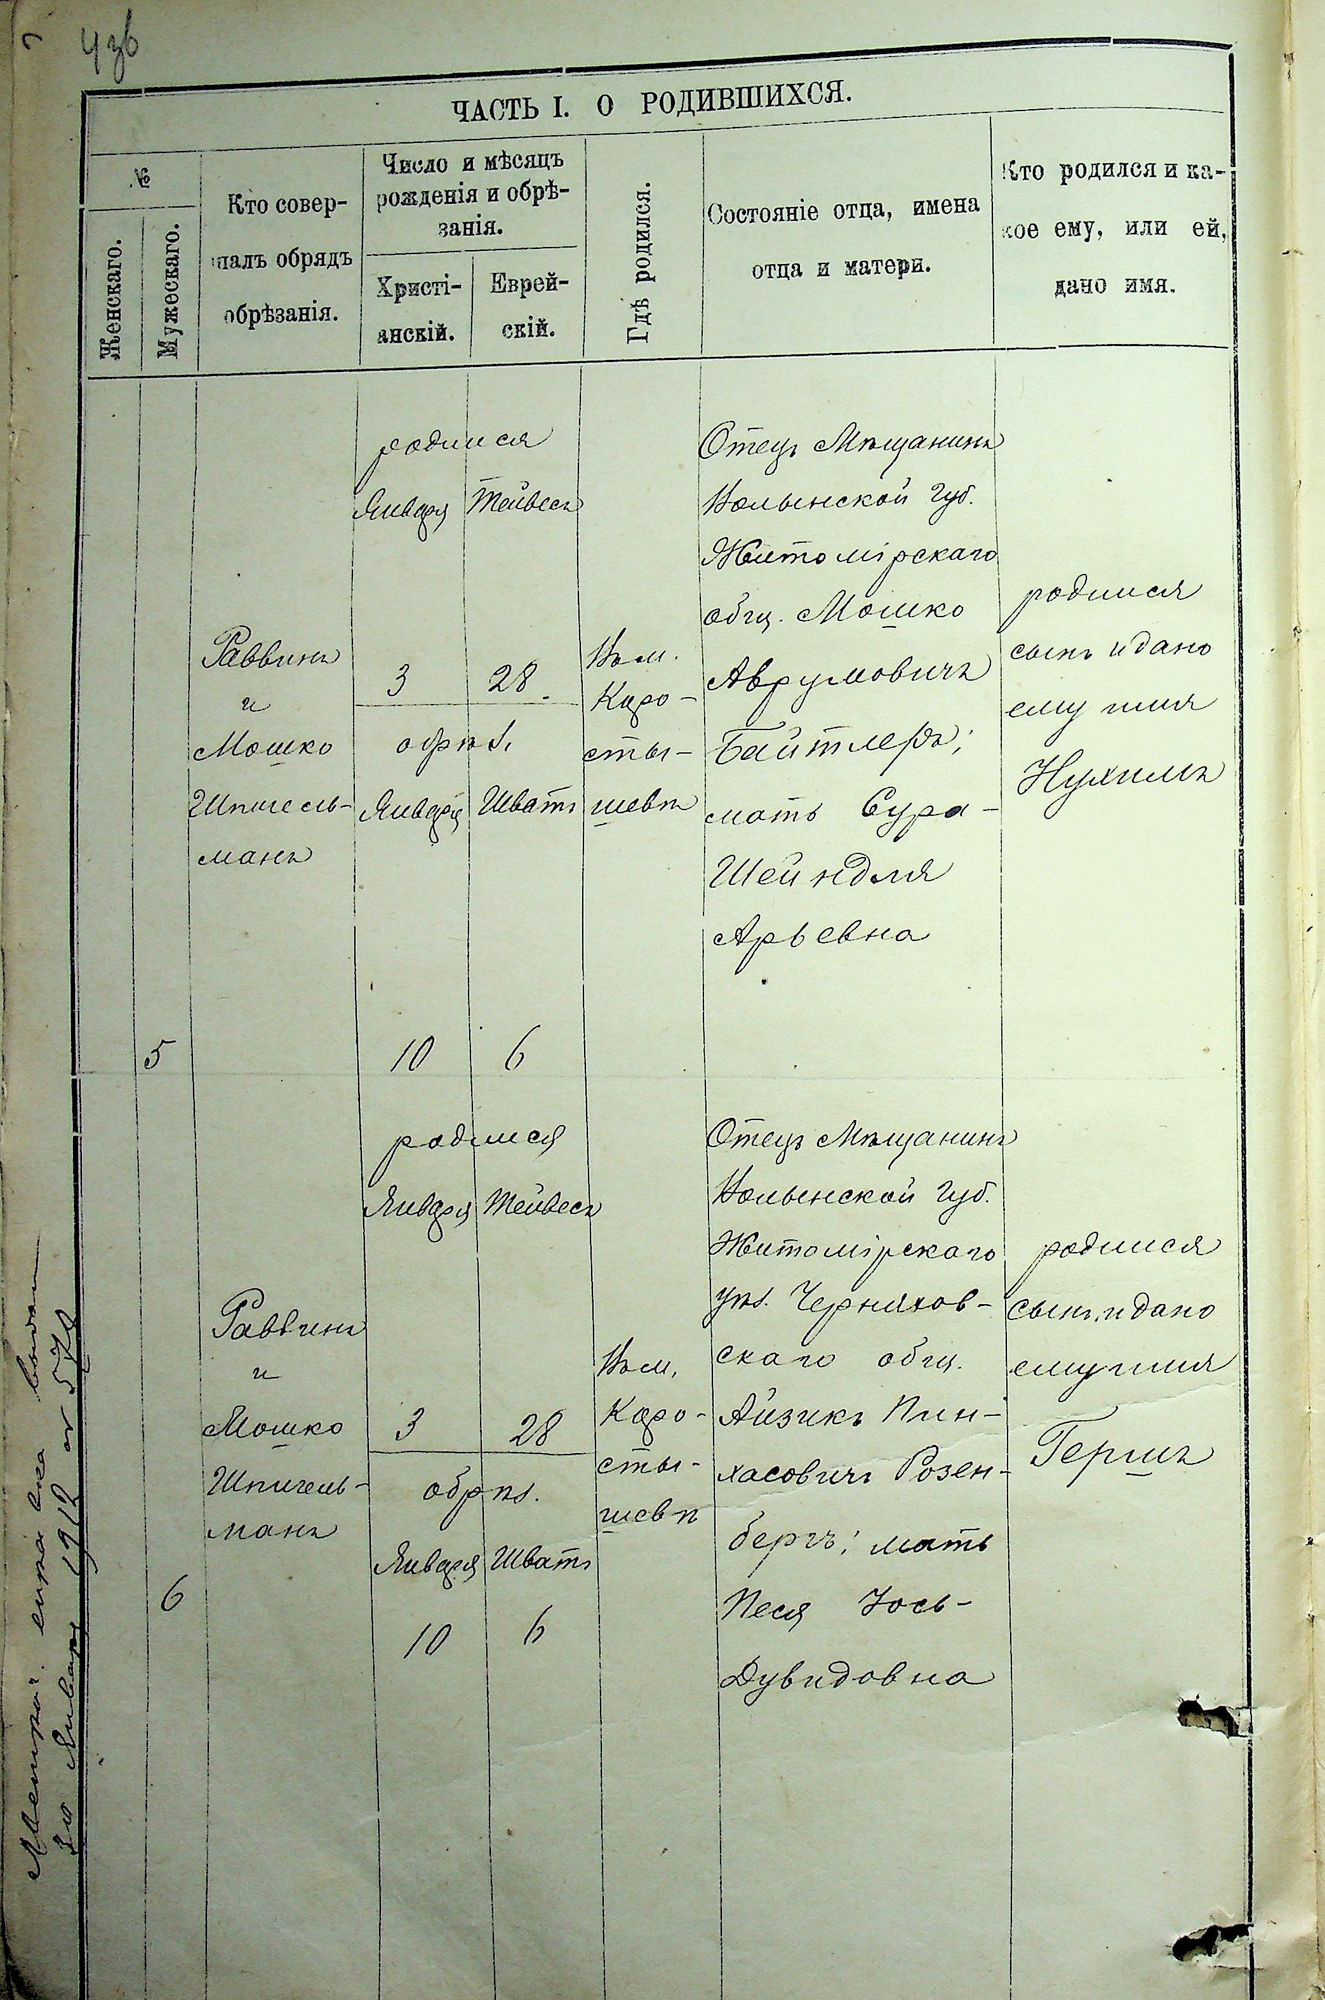 ЧАСТЬ I. О РОДИВШИХСЯ.
№
Женскаго.
Мужескаго.
Кто совер-
шалъ обрядъ
обрѣзанія.
Число и мѣсяцъ
рожденія и обрѣ-
занія.
Христі-
анскій.
Еврей-
скій.
Гдѣ родился.
Состояніе отца, имена
отца и матери.
Кто родился и ка-
кое ему, или ей,
дано имя.
5
Раввинъ
и
Мошко
Шпигель-
манъ
родился
Января Тейвесъ
3 28
обрѣз.
Января Шватъ
10 6
Въ м.
Коро-
сты-
шевѣ
Отецъ Мѣщанинъ
Волынской губ.
Житомірскаго
общ. Мошко
Аврумовичъ
Байтлеръ;
мать Сура-
Шейндля
Арьевна
родился
сынъ и дано
ему имя
Нухимъ
6
Раввинъ
и
Мошко
Шпигель-
манъ
родился
Января Тейвесъ
3 28
обрѣз.
Января Шватъ
10 6
Въ м.
Коро-
сты-
шевѣ
Отецъ Мѣщанинъ
Волынской губ.
Житомірскаго
уѣз. Черняхов-
скаго общ.
Айзикъ Пин-
хасовичъ Розен-
бергъ; мать
Песя Іось-
Дувидовна
родился
сынъ и дано
ему имя
Гершъ
30 Января 1912